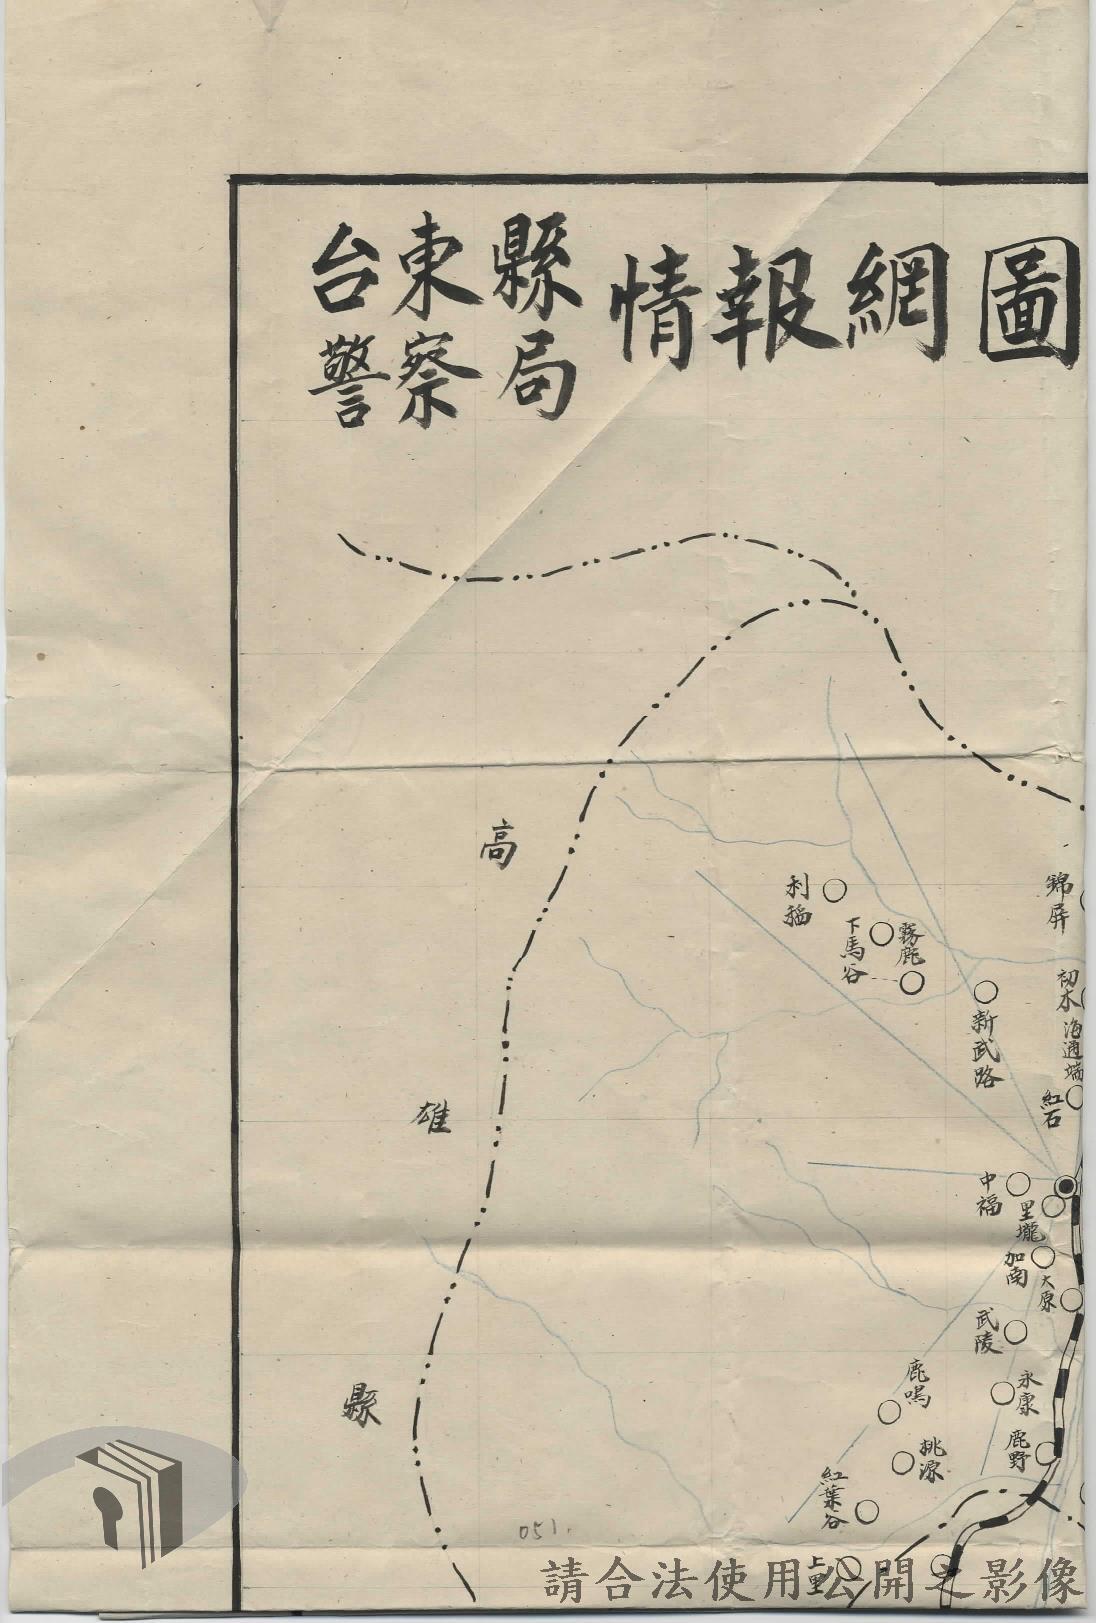 台東縣
警察局
情報網圖
高雄縣
利稻
下馬谷
霧鹿
新武路
錦屏
初來
海通端
紅石
中福
里壠
加南
大原
武陵
永康
鹿鳴
鹿野
桃源
紅葉谷
上里
051.
請合法使用公開之影像